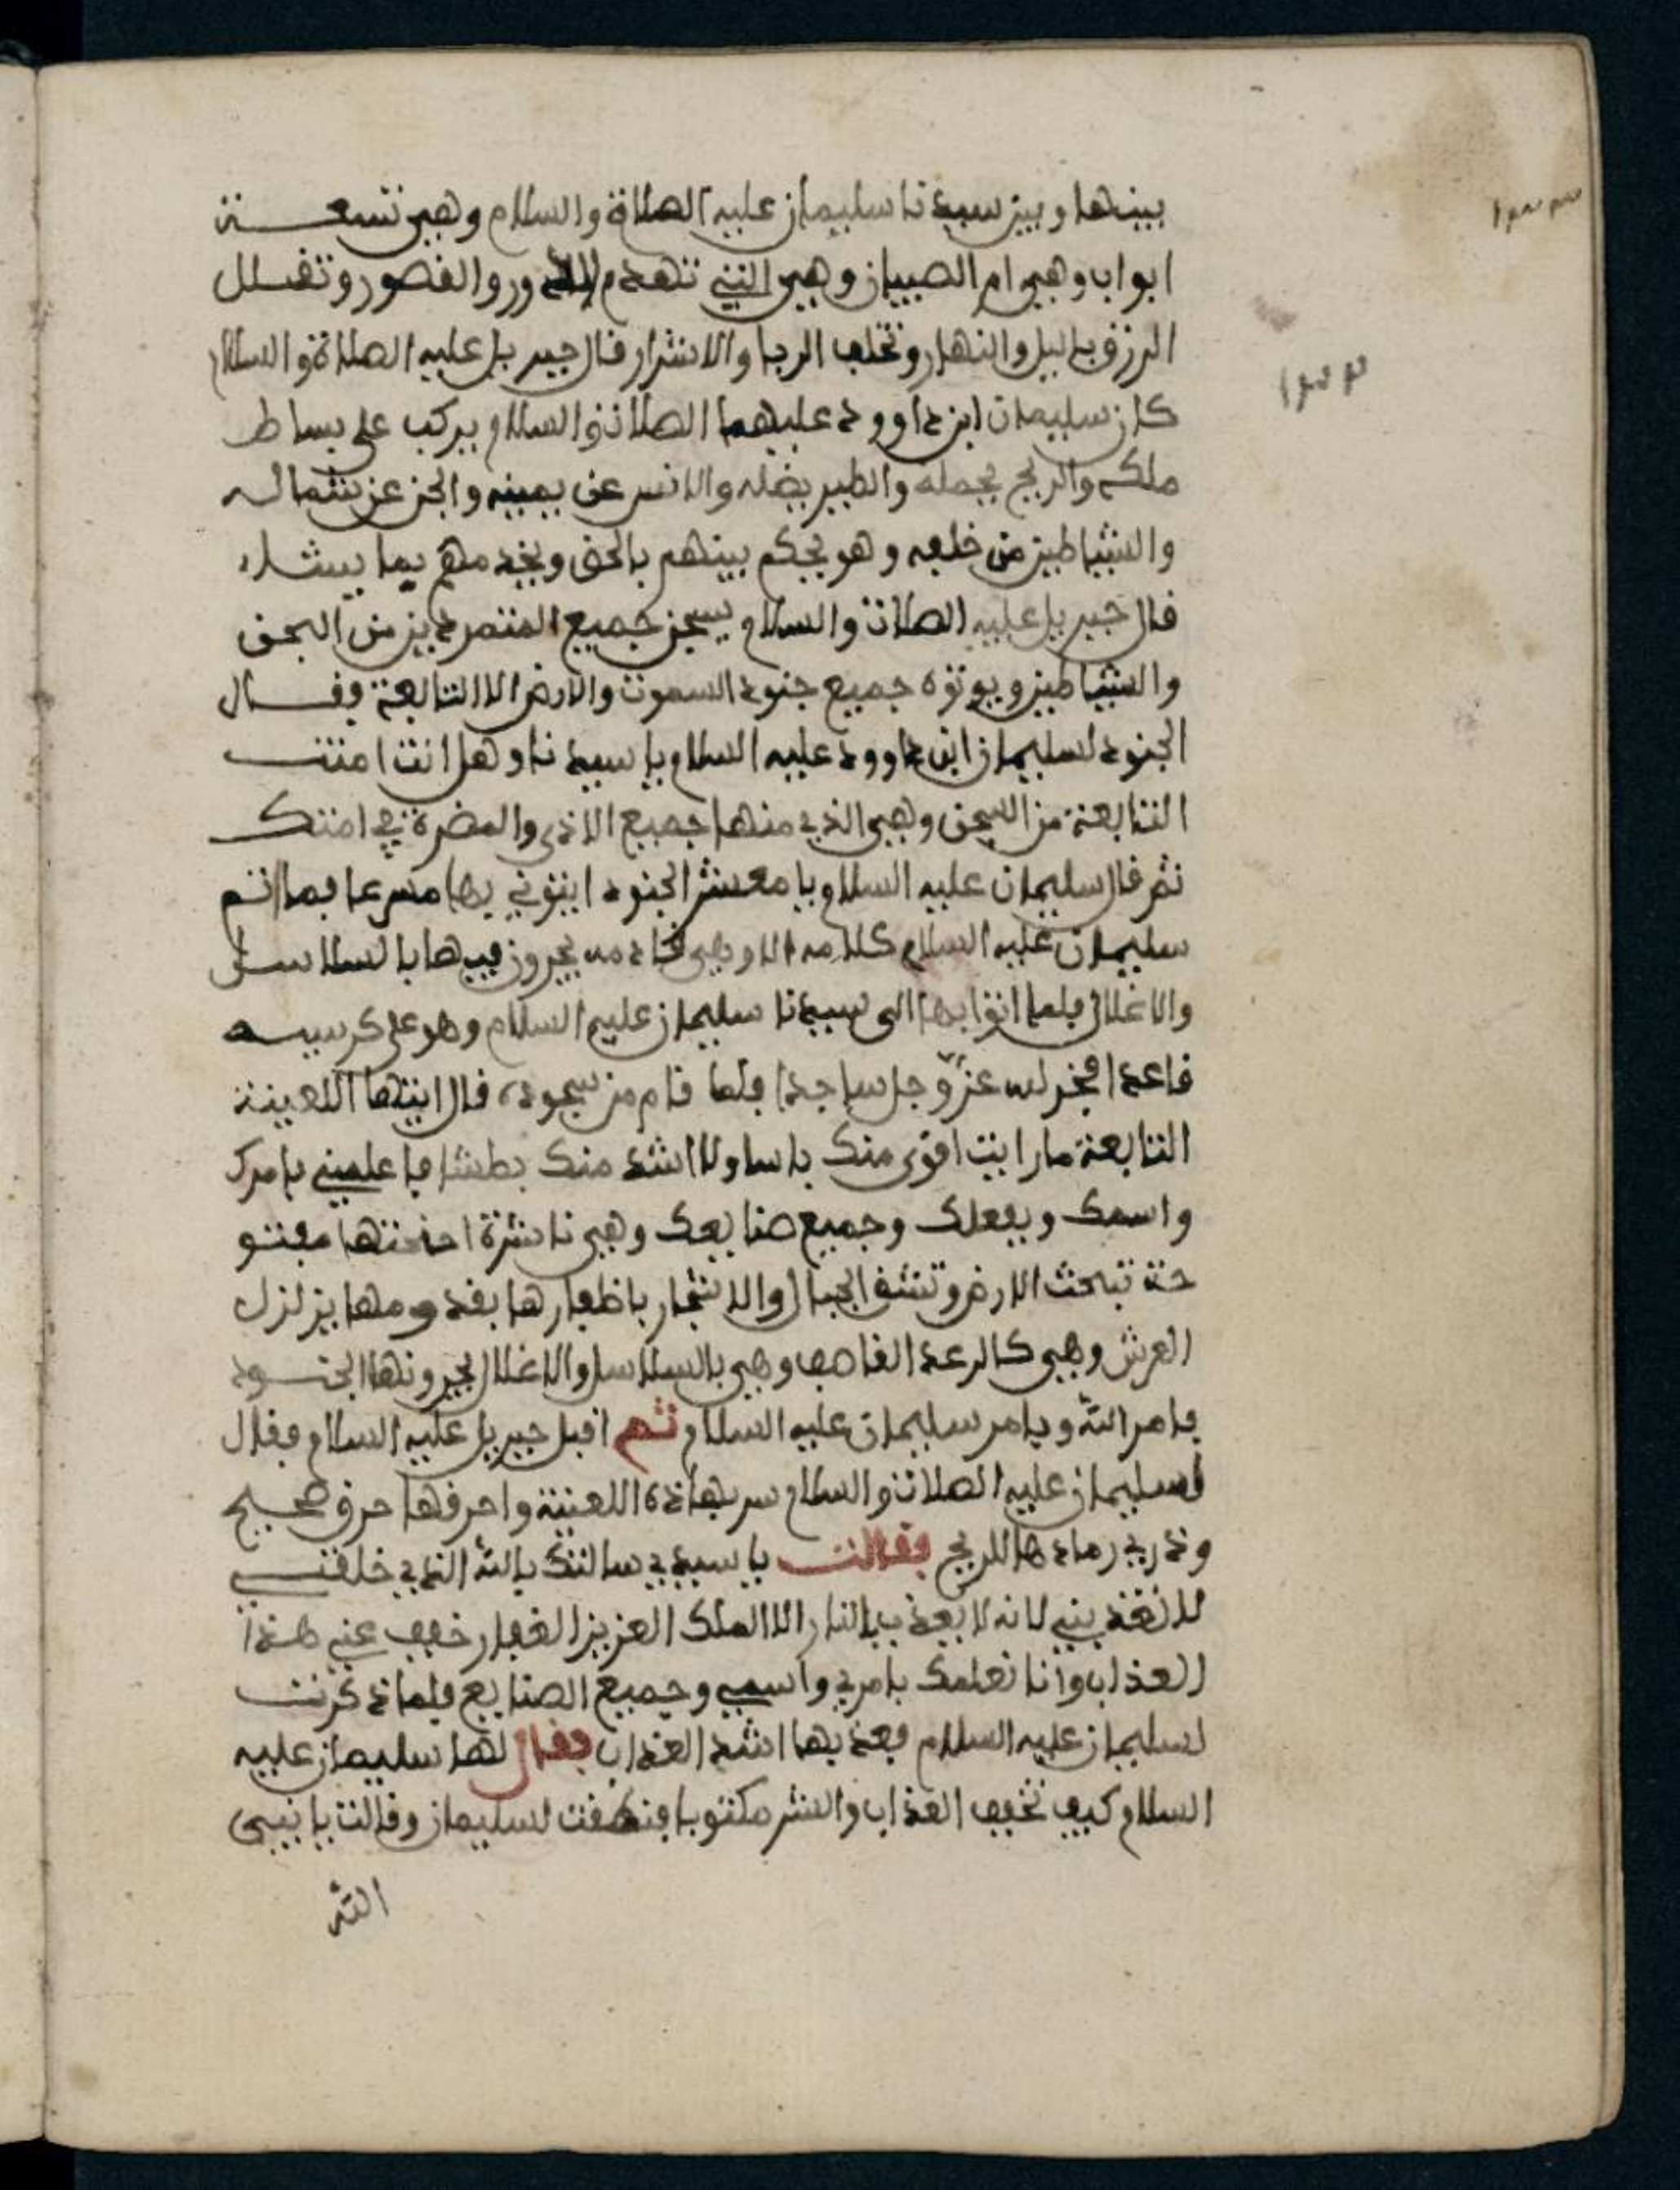 بينها وبين سيدنا سليمان عليه الصلاة والسلام وهي تسعة
ابواب وهي ام الصبيان وهي التي تهدم الدور والقصور وتقلل
الرزق باليل والنهار وتخلف الربا والاشرار قال جبريل عليه الصلاة والسلام
كان سليمان ابن داوود عليهما الصلاة والسلام يركب على بساط
ملكه والريح يحمله والطير يضله والانس عن يمينه والجن عن شماله
والشياطين من خلفه وهو يحكم بينهم بالحق ويخدمهم بما يشاء
قال جبريل عليه الصلاة والسلام يسجن جميع المتمردين من الجن
والشياطين ويوتوه جميع جنود السموت والارض الا التابعة وقال
الجنود لسليمان ابن داوود عليه السلام يا سيدنا وهل انت امنت
التابعة من السجن وهي الذي منها جميع الاذى والمضرة في امتك
ثم قال سليمان عليه السلام يا معشر الجنود ايتوني بها مسرعا فما اتم
سليمان عليه السلام كلامه الا وهي يجرون فيها بالسلاسل
والاغلال فلما اتوا بها الى سيدنا سليمان عليه السلام وهو على كرسيه
قاعدا فخر لله عز وجل ساجدا فلما قام من سجوده قال ايتها اللعينة
التابعة ما رايت اقوى منك باسا ولا اشد منك بطشا فاعلميني بامرك
واسمك وبفعلك وجميع صنايعك وهي ناشرة اجنحتها مفتو
حة تبحث الارض وتشق الجبال والاشجار باظفارها بقدومها يزلزل
العرش وهي كالرعد القاصف وهي بالسلاسل والاغلال يجرونها الجنود
بامر الله وبامر سليمان عليه السلام ثم اقبل جبريل عليه السلام فقال
لسليمان عليه الصلاة والسلام سر بهاذه اللعينة واحرقها حرق صحيح
وذري رمادها للريح فقالت يا سيدي سالتك بالله الذي خلقني
لا تعذبني لانه لا يعذب بالنار الا الملك العزيز الغفار خفف عني هذا
العذاب وانا نعلمك بامري واسمي وجميع الصنايع فلما ذكرت
لسليمان عليه السلام فعذبها اشد العذاب فقال لها سليمان عليه
السلام كيف تخفف العذاب والشر مكتوبا فنطقت لسليمان وقالت يا نبي
الله